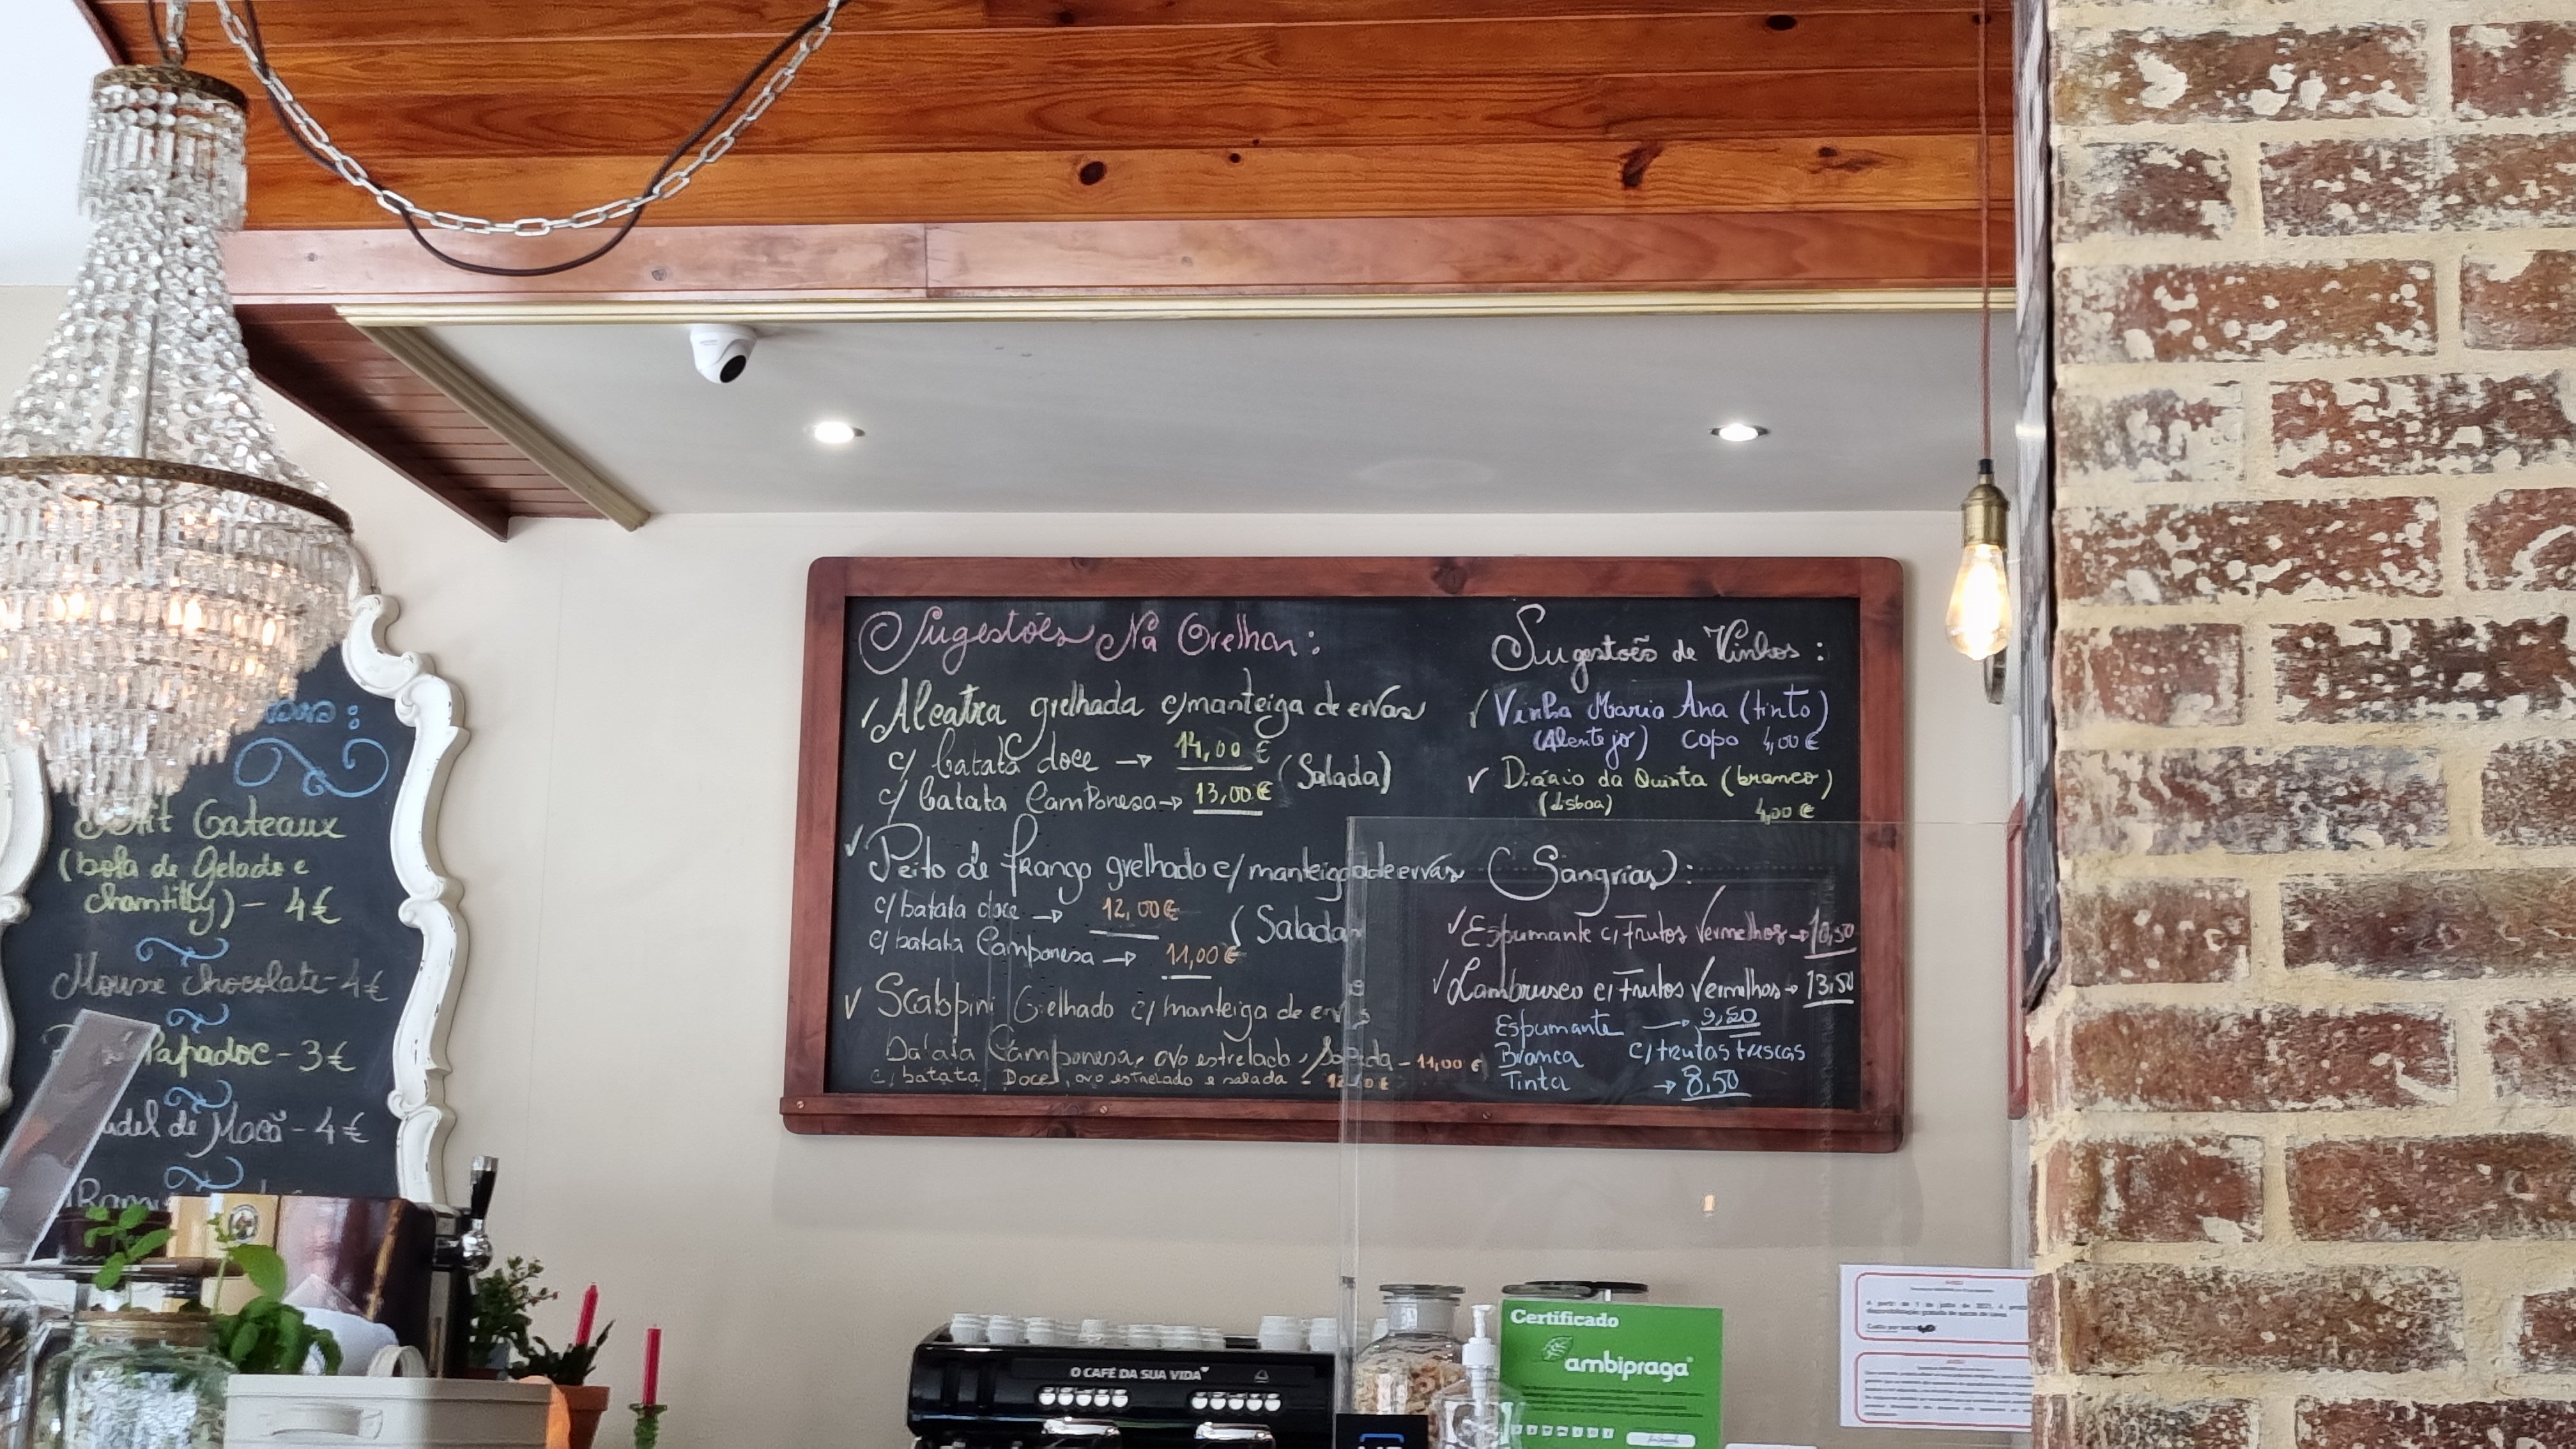 Petit Gateaux
(bola de Gelado e
chantilly) - 4€
Mousse chocolate - 4€
Papadoc - 3€
de Maçã - 4€
Sugestões Na Grelha:
Alcatra grelhada c/manteiga de ervas
c/ batata doce → 14,00 €
c/ batata Camponesa → 13,00 €
(Salada)
Peito de frango grelhado c/ manteiga de ervas
c/batata doce → 12,00€
c/batata Camponesa → 11,00€
(Salada
Scalopini Grelhado c/ manteiga de ervas
Batata Camponesa, ovo estrelado, Salada - 11,00 €
c/ batata Doce, ovo estrelado e salada -
Sugestões de Vinhos:
Vinha Maria Ana (tinto)
(Alentejo) copo 4,00€
Diário da Quinta (branco)
(Lisboa) 4,00 €
(Sangrias):
Espumante c/ Frutos Vermelhos → 10,50
Lambrusco c/ Frutos Vermelhos → 13,50
Espumante → 9,50
Branca c/frutas frescas
Tinta → 8,50
O CAFÉ DA SUA VIDA
Certificado
ambipraga